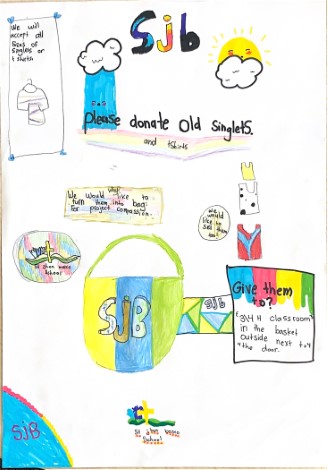 Sjb
We will
accept all
sizes of
singlets or
t shirts
Please donate old singlets.
and tshirts
Why?
We would like to
turn them into bags
for project compassion.
We
would
like to
sell them
too!
SJB
sjb
Give them
to?
3/4 H classroom
in the basket
outside next to
the door.
School
SJB